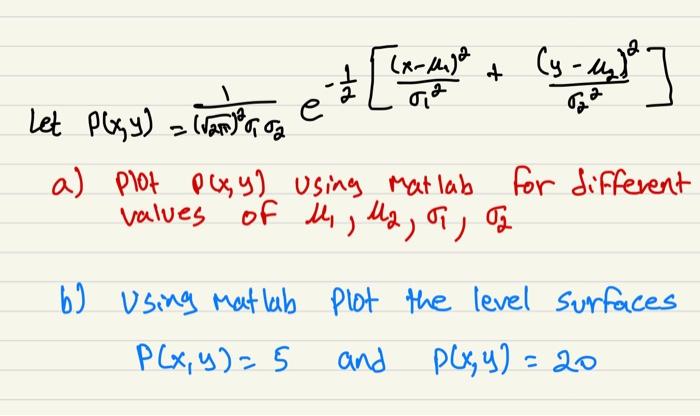 Let P(x,y) = 1/((√2π)² σ₁ σ₂) e^(-1/2 [ (x-μ₁)²/σ₁² + (y-μ₂)²/σ₂² ])
a) Plot P(x,y) using Matlab for different
values of μ₁, μ₂, σ₁, σ₂
b) Using Matlab Plot the level surfaces
P(x,y) = 5 and P(x,y) = 20